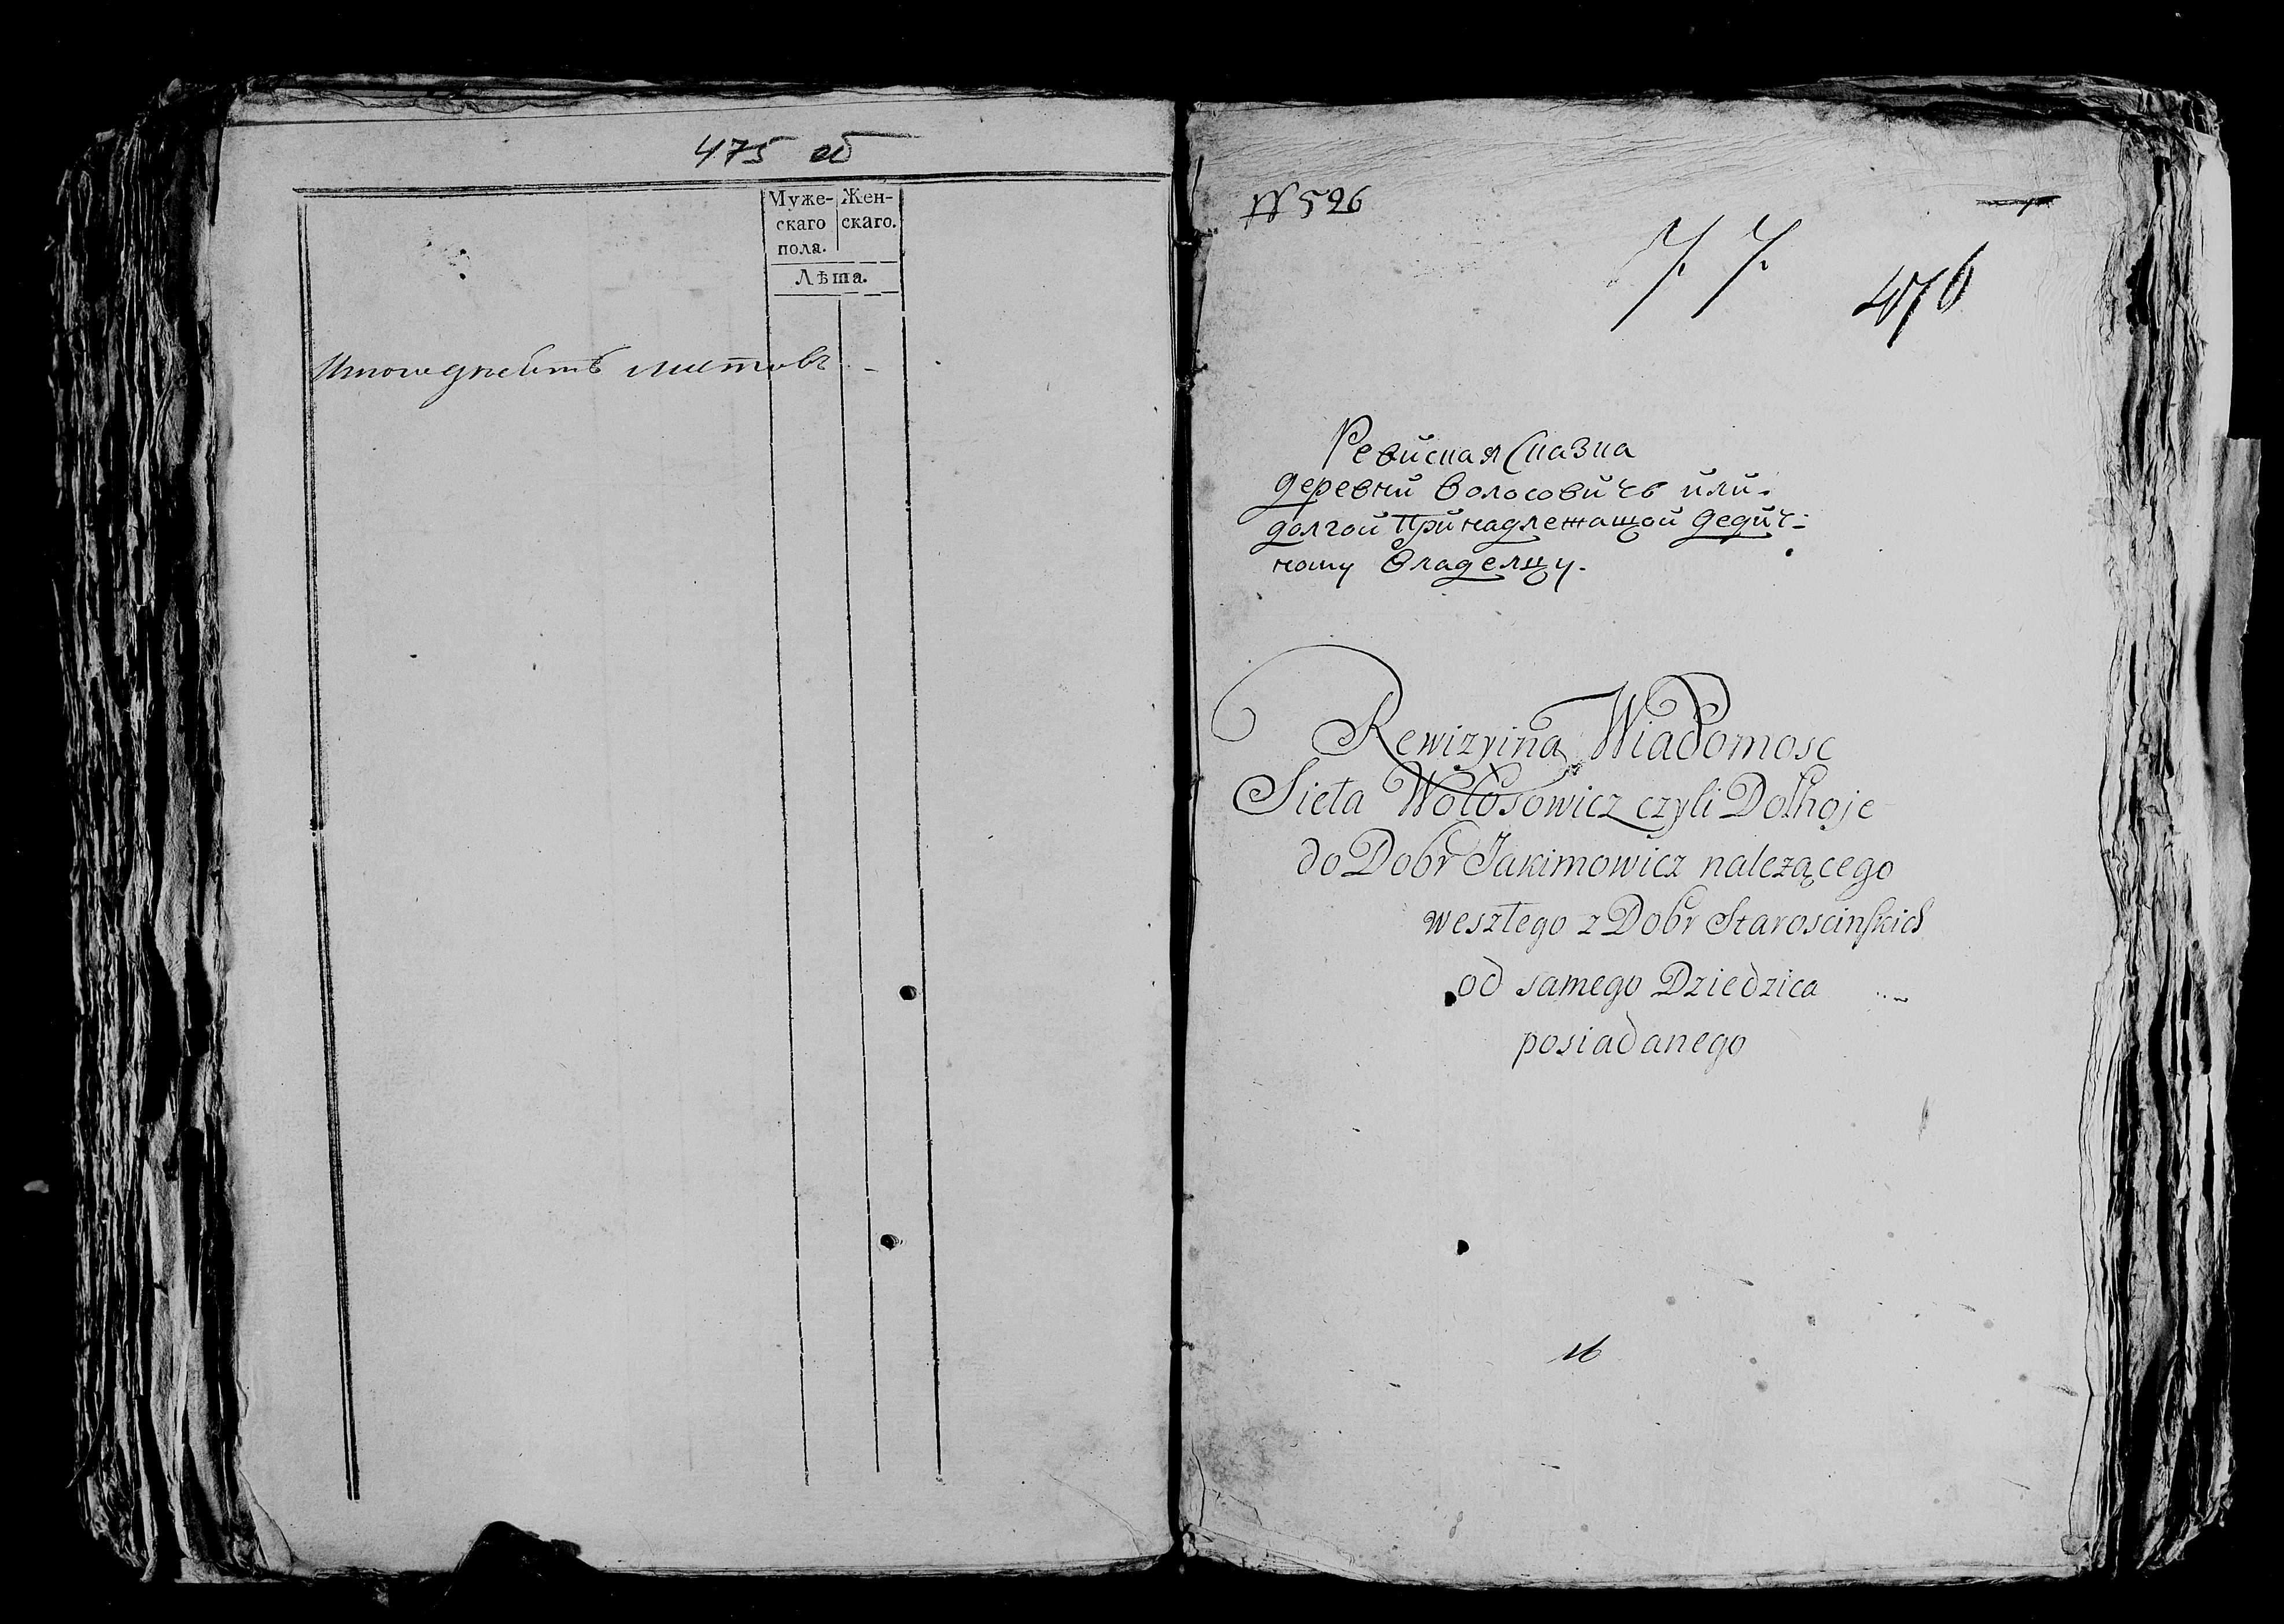 475 об
Муже- Жен-
скаго скаго.
пола.
Лѣта.
листовъ
N 526
7. 7.
476
Ревиская Сказка
деревни Волосовичъ или
долгой принадлежащой дедич-
ному Владелцу.
Rewizyina Wiadomosc
Sieła Wołosowicz czyli Dołhoje
do Dobr Jakimowicz nalezącego
weszłego z Dobr Staroscinskich
od samego Dziedzica
posiadanego
16